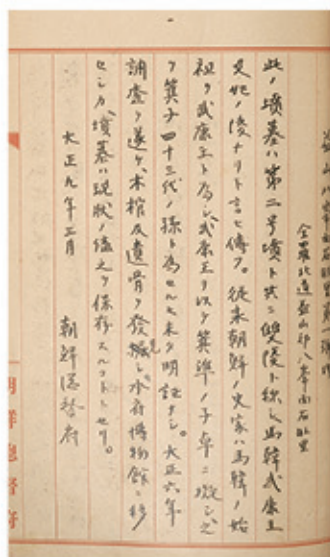 全羅北道益山郡八峯面石旺里
此ノ墳墓ハ第二号墳ト共ニ雙陵ト称シ馬韓武康王
又妃ノ陵ナリト言ヒ傳フ。従来朝鮮ノ史家ハ馬韓ノ始
祖ヲ武康王ト為シ武康王ヲ以ク箕準ノ子卓ニ擬シ之
ヲ箕子四十三代ノ孫ト為セルモ未タ明証ナシ。大正六年
調査ヲ遂ケ木棺及遺骨ヲ發掘シ本府博物館ニ移
セシカ墳墓ハ現状ノ儘之ヲ保存スルコトトセリ。
大正九年三月 朝鮮總督府
朝鮮總督府